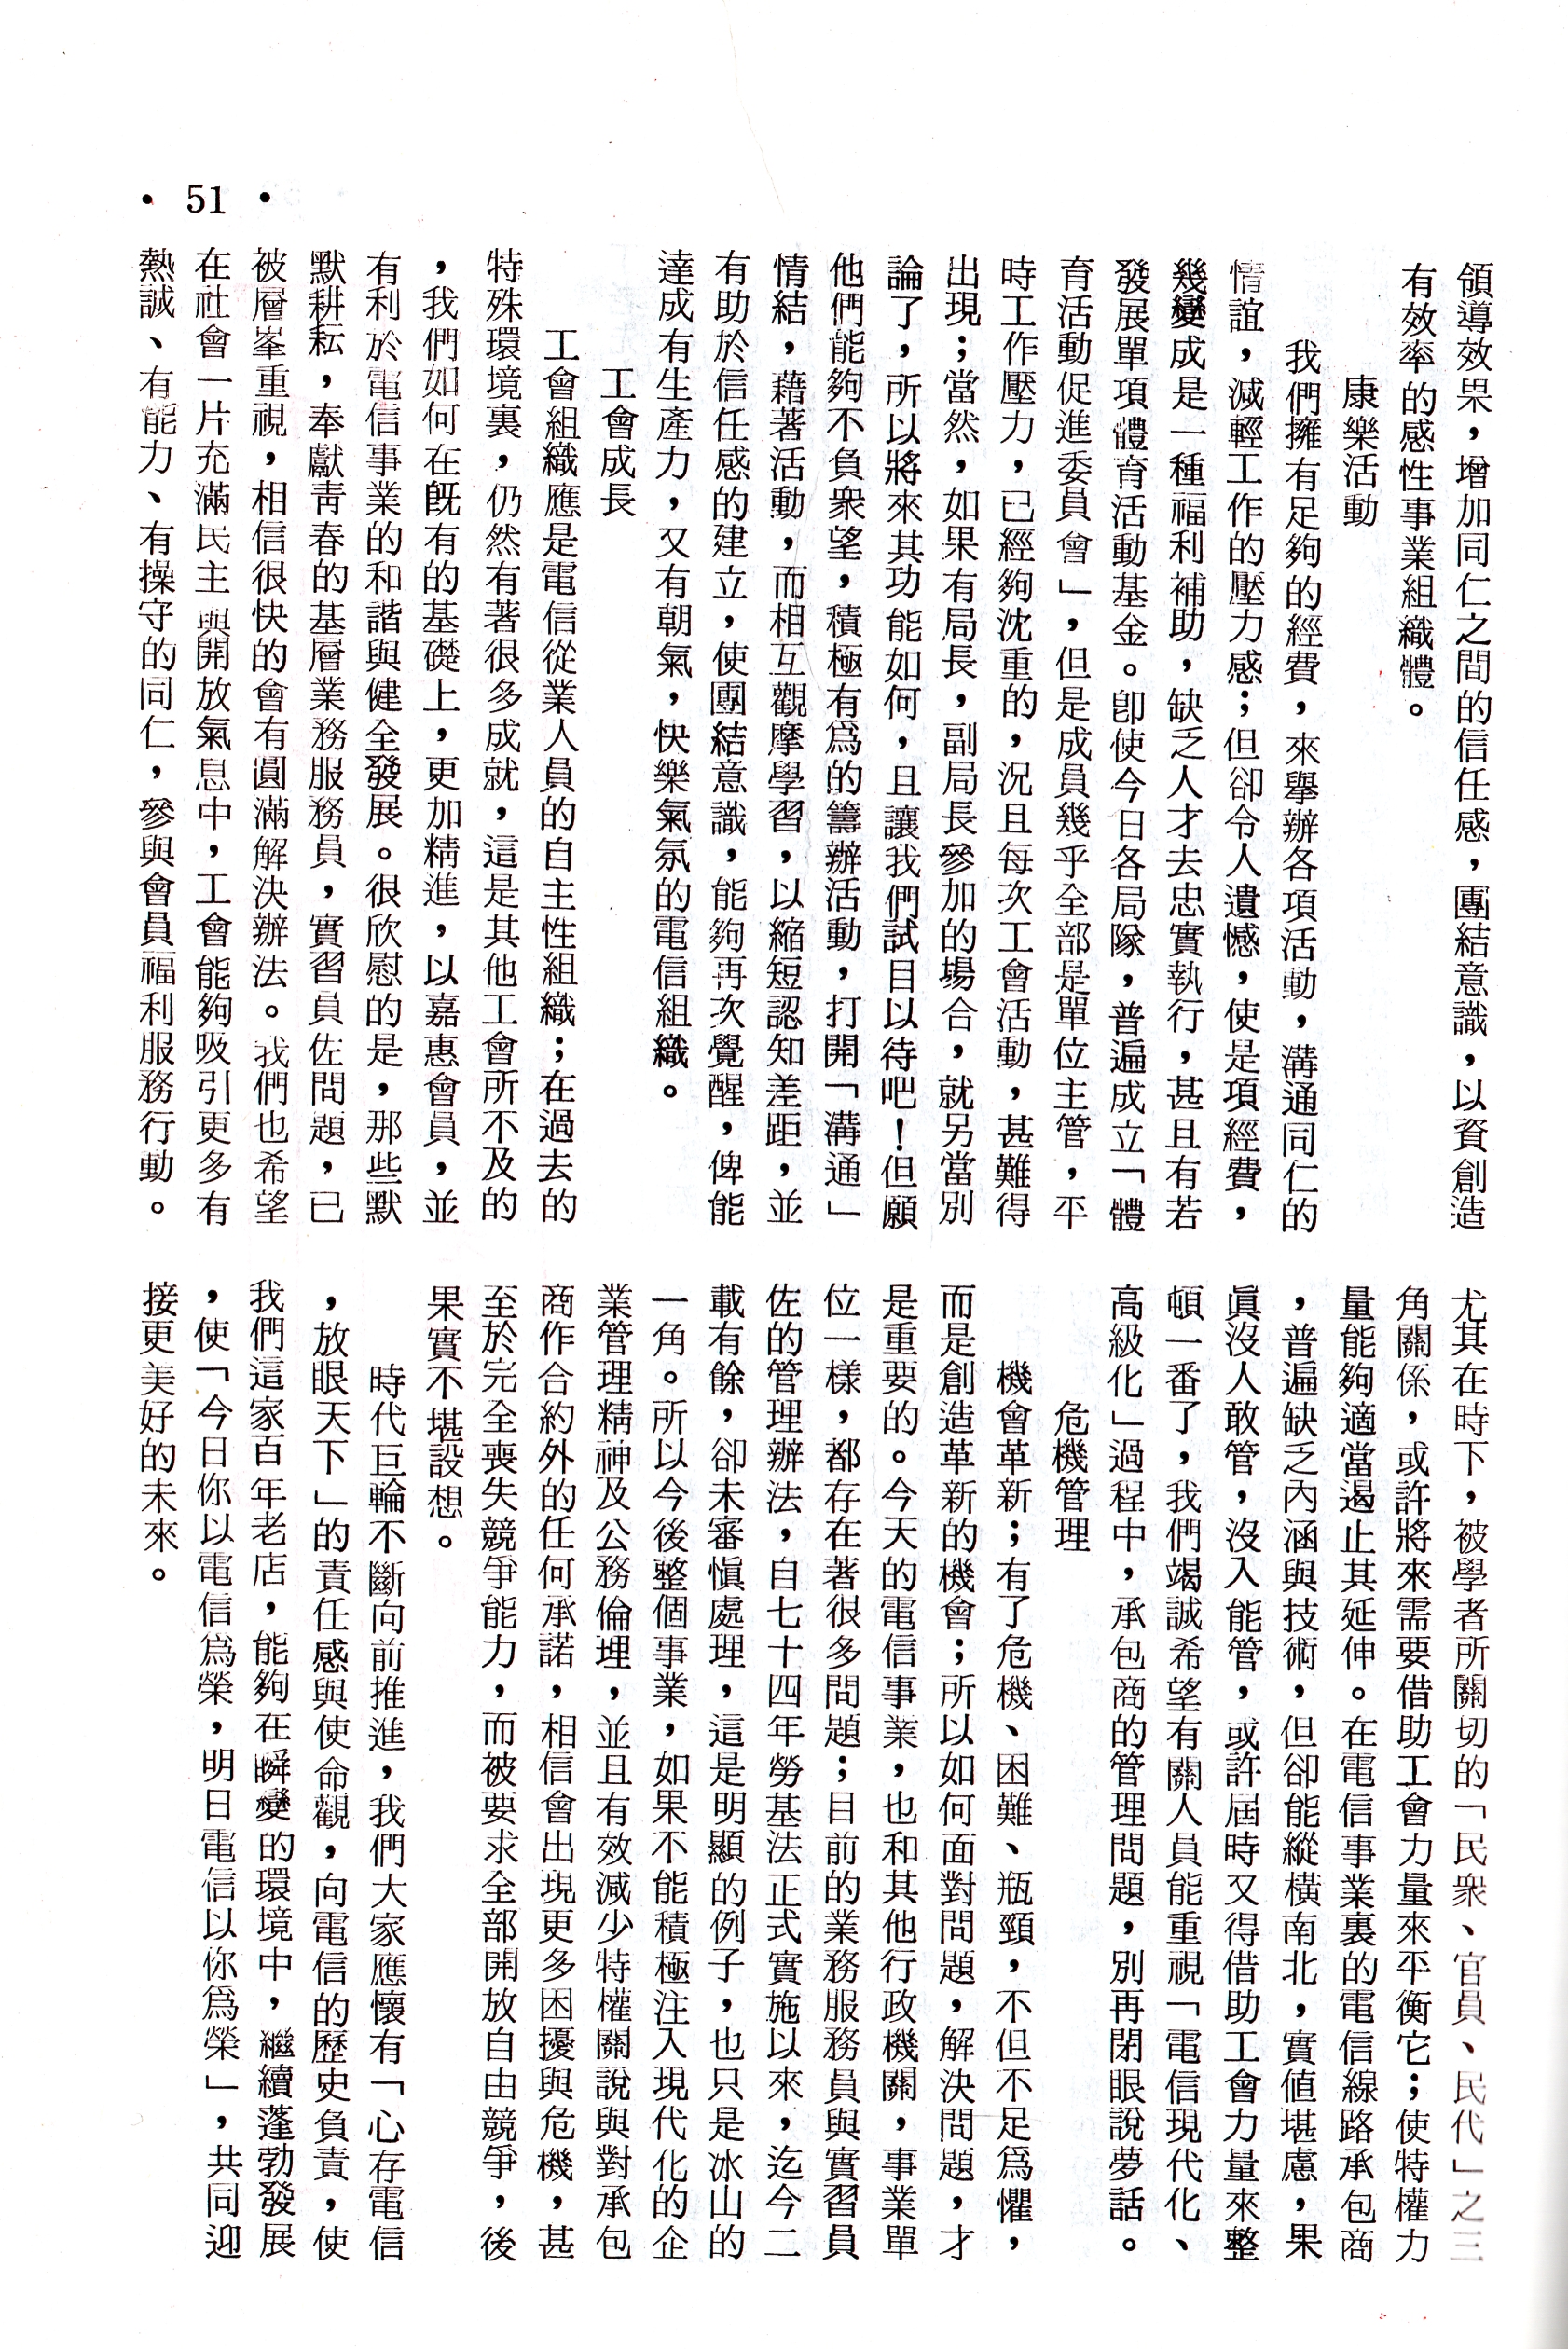 領導效果，增加同仁之間的信任感，團結意識，以資創造
有效率的感性事業組織體。
康樂活動
我們擁有足夠的經費，來舉辦各項活動，溝通同仁的
情誼，減輕工作的壓力感；但卻令人遺憾，使是項經費，
幾變成是一種福利補助，缺乏人才去忠實執行，甚且有若
發展單項體育活動基金。卽使今日各局隊，普遍成立「體
育活動促進委員會」，但是成員幾乎全部是單位主管，平
時工作壓力，已經夠沈重的，況且每次工會活動，甚難得
出現；當然，如果有局長，副局長參加的場合，就另當別
論了，所以將來其功能如何，且讓我們試目以待吧！但願
他們能夠不負衆望，積極有爲的籌辦活動，打開「溝通」
情結，藉著活動，而相互觀摩學習，以縮短認知差距，並
有助於信任感的建立，使團結意識，能夠再次覺醒，俾能
達成有生產力，又有朝氣，快樂氣氛的電信組織。
工會成長
工會組織應是電信從業人員的自主性組織；在過去的
特殊環境裏，仍然有著很多成就，這是其他工會所不及的
，我們如何在旣有的基礎上，更加精進，以嘉惠會員，並
有利於電信事業的和諧與健全發展。很欣慰的是，那些默
默耕耘，奉獻靑春的基層業務服務員，實習員佐問題，已
被層峯重視，相信很快的會有圓滿解決辦法。我們也希望
在社會一片充滿民主與開放氣息中，工會能夠吸引更多有
熱誠、有能力、有操守的同仁，參與會員福利服務行動。
尤其在時下，被學者所關切的「民衆、官員、民代」之三
角關係，或許將來需要借助工會力量來平衡它；使特權力
量能夠適當遏止其延伸。在電信事業裏的電信線路承包商
，普遍缺乏內涵與技術，但卻能縱橫南北，實値堪慮，果
眞沒人敢管，沒入能管，或許屆時又得借助工會力量來整
頓一番了，我們竭誠希望有關人員能重視「電信現代化、
高級化」過程中，承包商的管理問題，別再閉眼說夢話。
危機管理
機會革新；有了危機、困難、瓶頸，不但不足爲懼，
而是創造革新的機會；所以如何面對問題，解決問題，才
是重要的。今天的電信事業，也和其他行政機關，事業單
位一樣，都存在著很多問題；目前的業務服務員與實習員
佐的管理辦法，自七十四年勞基法正式實施以來，迄今二
載有餘，卻未審愼處理，這是明顯的例子，也只是冰山的
一角。所以今後整個事業，如果不能積極注入現代化的企
業管理精神及公務倫理，並且有效減少特權關說與對承包
商作合約外的任何承諾，相信會出現更多困擾與危機，甚
至於完全喪失競爭能力，而被要求全部開放自由競爭，後
果實不堪設想。
時代巨輪不斷向前推進，我們大家應懷有「心存電信
，放眼天下」的責任感與使命觀，向電信的歷史負責，使
我們這家百年老店，能夠在瞬變的環境中，繼續蓬勃發展
，使「今日你以電信爲榮，明日電信以你爲榮」，共同迎
接更美好的未來。
• 51 •